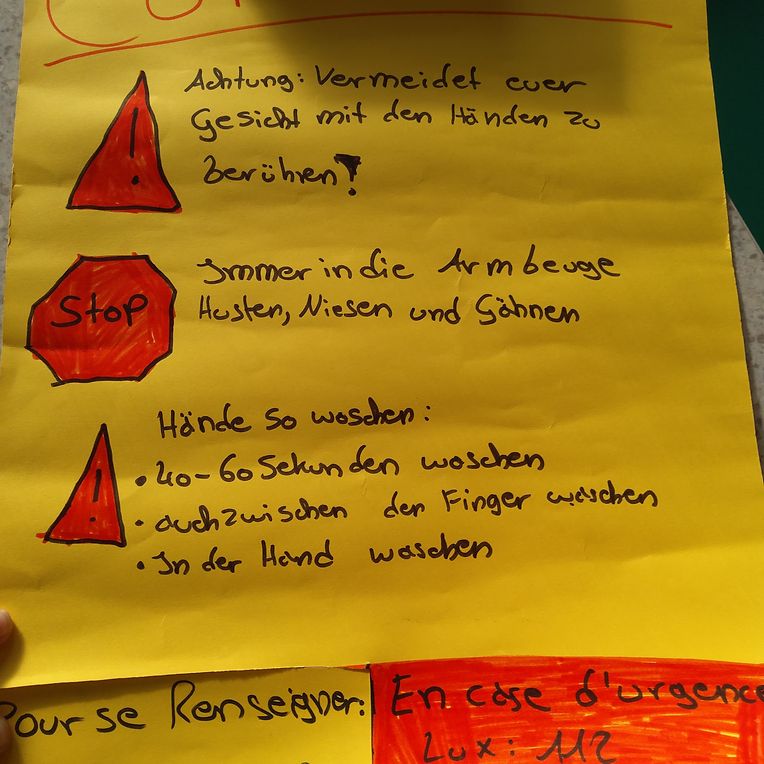 Achtung: Vermeidet euer
Gesicht mit den Händen zu
berühren!
Stop
Immer in die Armbeuge
Husten, Niesen und Gähnen
Hände so waschen:
• 40-60 Sekunden waschen
• auch zwischen der Finger waschen
• In der Hand waschen
Pour se Renseigner:
En case d'urgence
Lux: 112